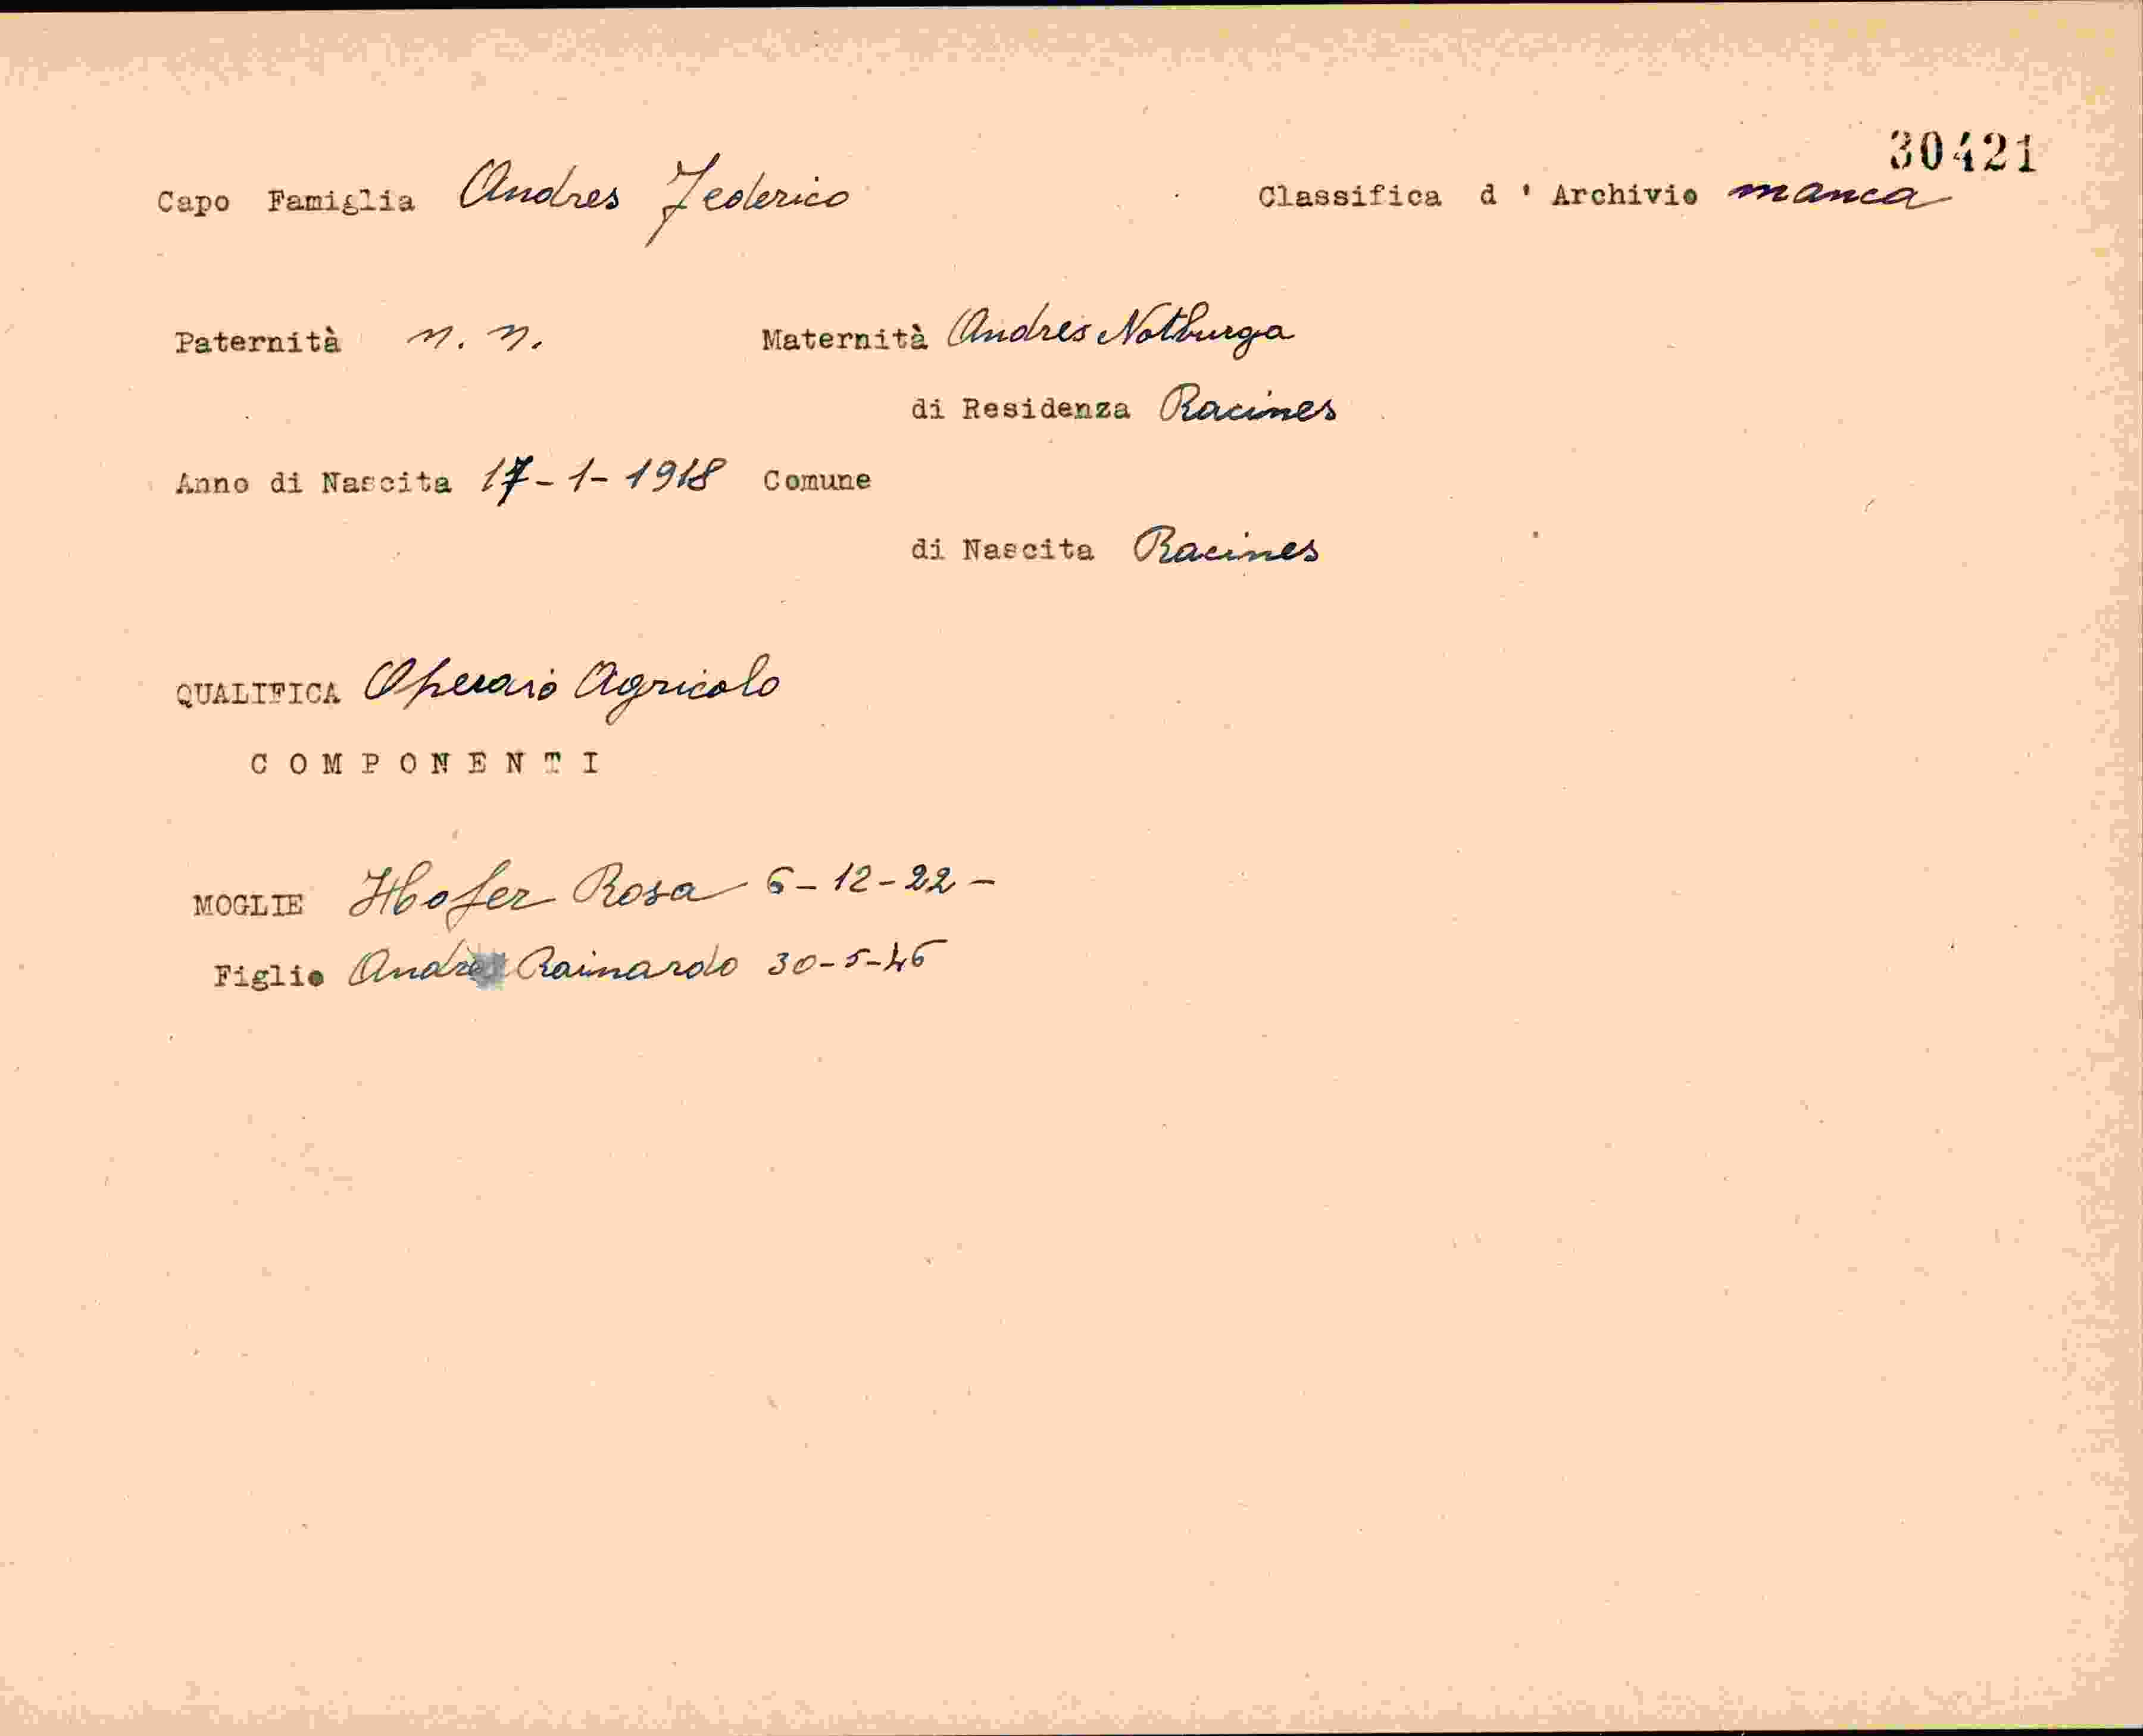 30421
Capo Famiglia Andres Federico Classifica d ' Archivio manca
Paternità n. n. Maternità Andres Notburga
di Residenza Racines
Anno di Nascita 17-1-1918 Comune
di Nascita Racines
QUALIFICA Operaio Agricolo
COMPONENTI
MOGLIE Hofer Rosa 6-12-22-
Figlio Andres Rainardo 30-5-46